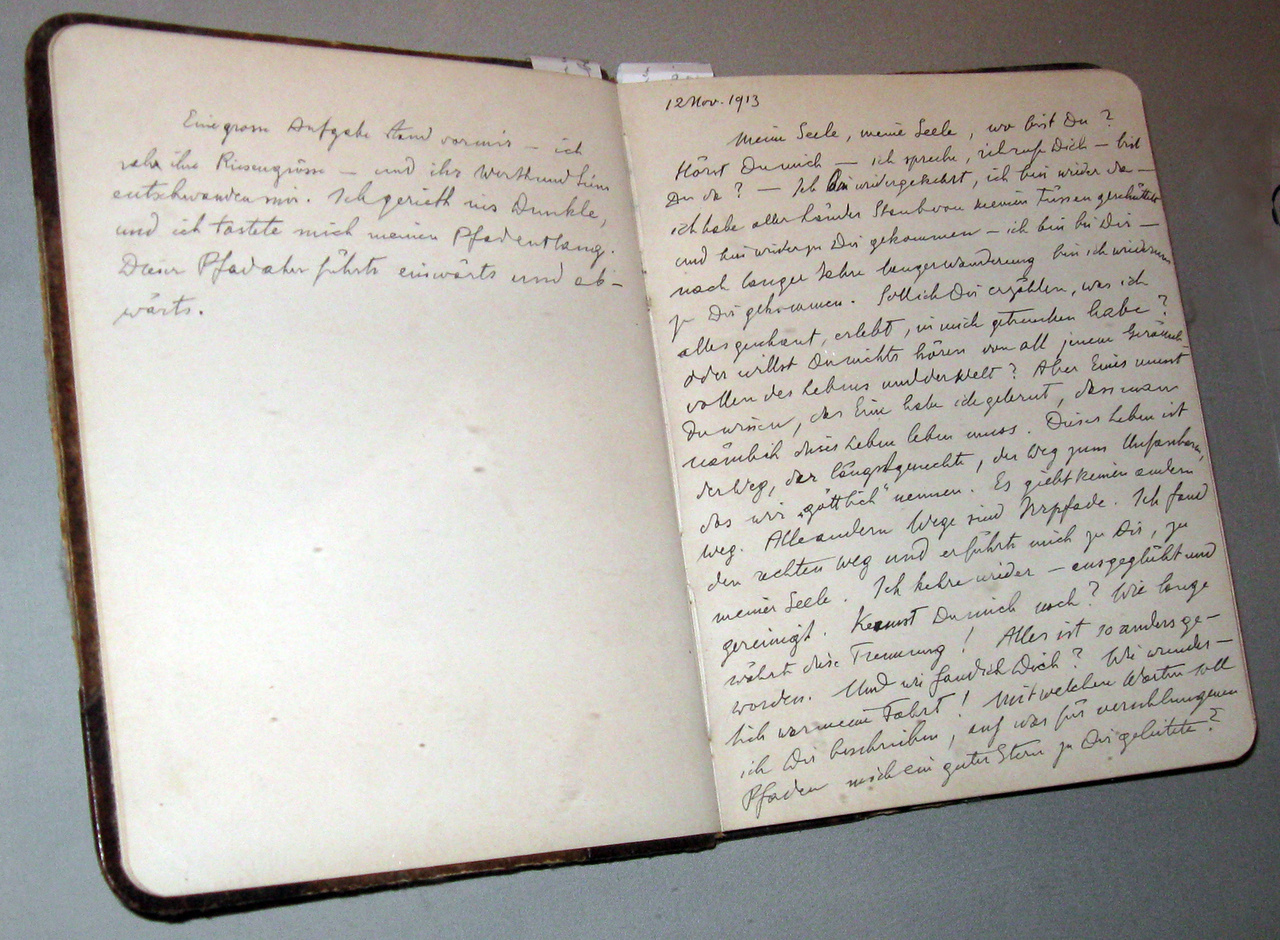 Eine grosse Aufgabe stand vor mir — ich
sah ihre Riesengrösse — und ihr Werth und Sinn
entschwanden mir. Ich gerieth ins Dunkle,
und ich tastete mich meinen Pfad entlang.
Dieser Pfad aber führte einwärts und ab-
wärts.
12 Nov. 1913
Meine Seele, meine Seele, wo bist Du?
Hörst Du mich — ich spreche, ich rufe Dich — bist
Du da? — Ich bin wiedergekehrt, ich bin wieder da —
ich habe aller Länder Staub von meinen Füssen geschüttelt
und bin wieder zu Dir gekommen — ich bin bei Dir —
nach langer Jahre langer Wanderung bin ich wieder
zu Dir gekommen. Soll ich Dir erzählen, was ich
alles geschaut, erlebt, in mich getrunken habe?
oder willst Du nichts hören von all jenem Geräusch-
vollen des Lebens und der Welt? Aber Eines musst
Du wissen, das Eine habe ich gelernt, dass man
nämlich dieses Leben leben muss. Dieses Leben ist
der Weg, der längstgesuchte, der Weg zum Unfassbaren,
das wir „göttlich“ nennen. Es giebt keinen andern
Weg. Alle andern Wege sind Irrpfade. Ich fand
den rechten Weg und er führte mich zu Dir, zu
meiner Seele. Ich kehre wieder — ausgeglüht und
gereinigt. Kennst Du mich noch? Wie lange
währte diese Trennung! Alles ist so anders ge-
worden. Und wie fand ich Dich? Wie wunder-
lich war meine Fahrt! Mit welchen Worten soll
ich Dir beschreiben, auf was für verschlungenen
Pfaden mich ein guter Stern zu Dir geleitete?